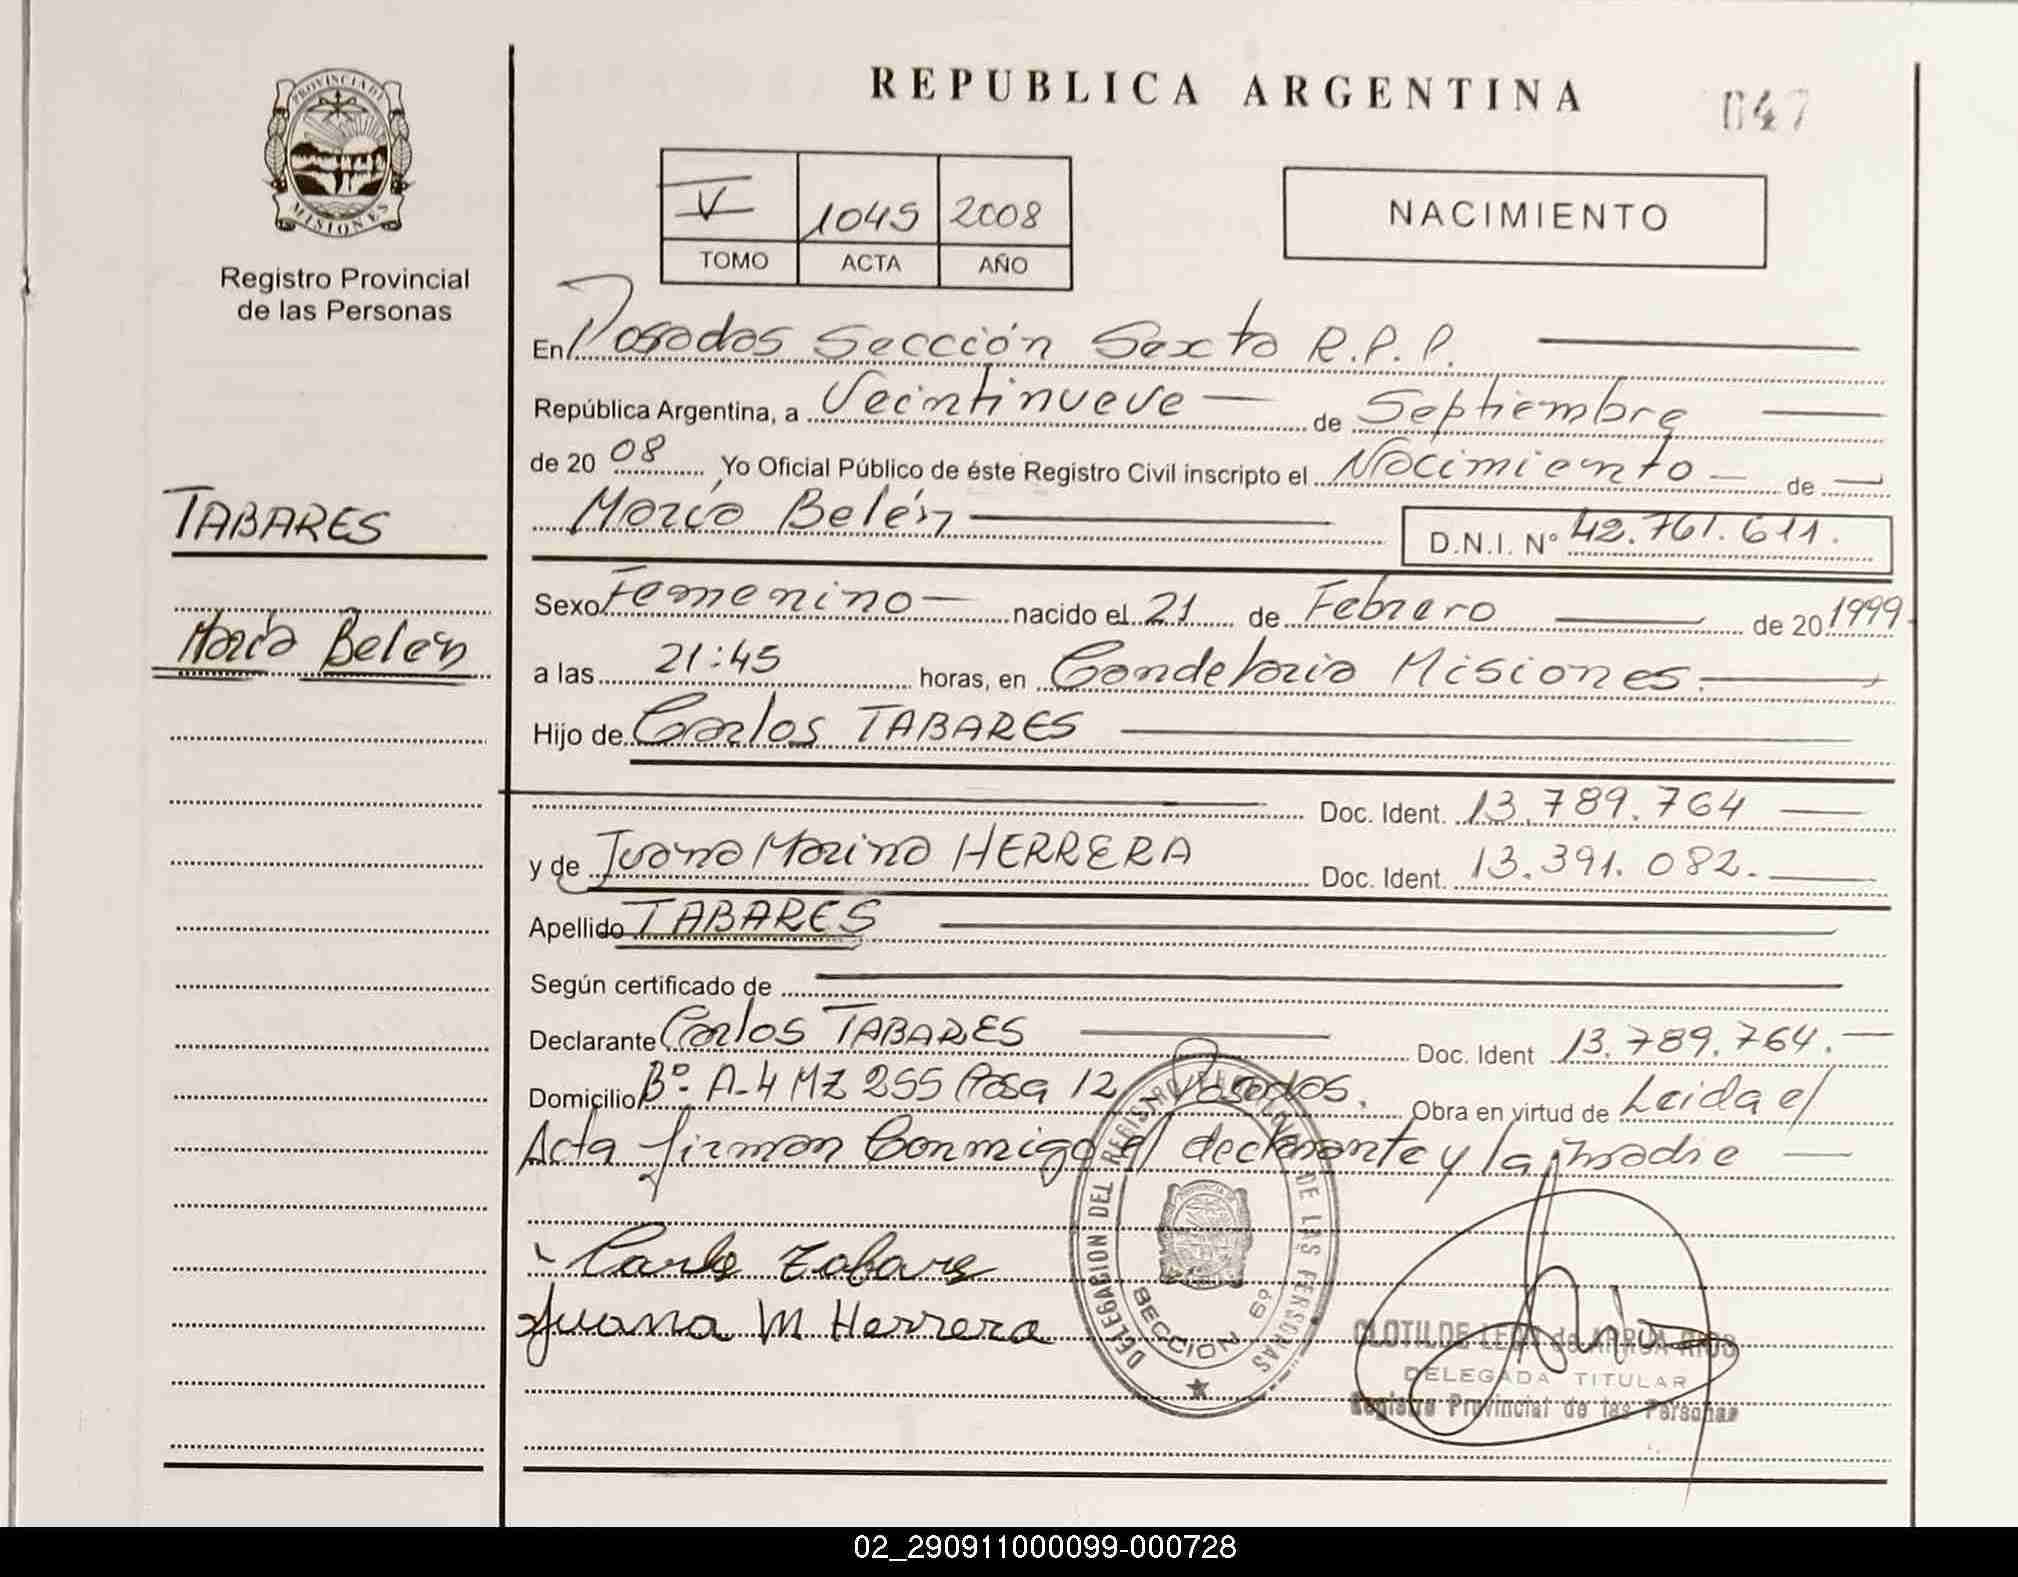 PROVINCIA DE
MISIONES
Registro Provincial
de las Personas
TABARES
María Belén
REPUBLICA ARGENTINA
047
V 1045 2008
TOMO ACTA AÑO
NACIMIENTO
En Posadas Sección Sexta R.P.P.
República Argentina, a Veintinueve de Septiembre
de 20 08, Yo Oficial Público de éste Registro Civil inscripto el Nacimiento de
María Belén D.N.I. N° 42.761.611.
Sexo Femenino nacido el 21 de Febrero de 20 1999
a las 21:45 horas, en Candelaria Misiones.
Hijo de Carlos TABARES
Doc. Ident. 13.789.764
y de Juana Marina HERRERA Doc. Ident. 13.391.082.
Apellido TABARES
Según certificado de
Declarante Carlos TABARES Doc. Ident 13.789.764.
Domicilio Bº A-4 MZ 255 Casa 12 Posadas. Obra en virtud de Leida el
Acta firman Conmigo el declarante y la madre
Carlos Tabares
Juana M Herrera
DELEGACION DEL REGISTRO PROVINCIAL DE LAS PERSONAS
SECCION 6º
CLOTILDE LEON de ARRUA RIOS
DELEGADA TITULAR
Registro Provincial de las Personas
02_290911000099-000728